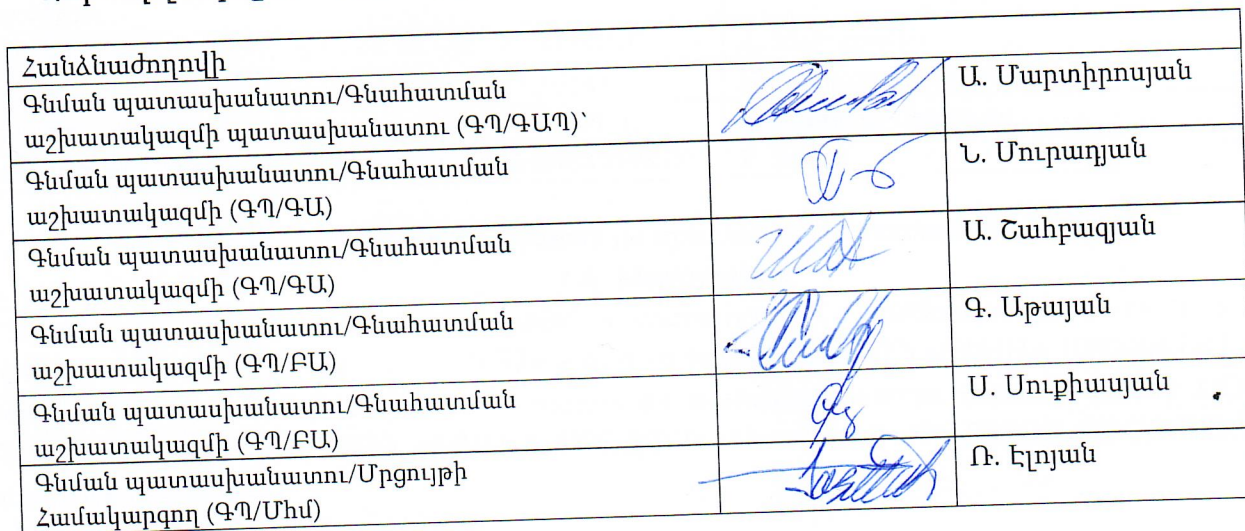 Հանձնաժողովի
Գնման պատասխանատու/Գնահատման
աշխատակազմի պատասխանատու (ԳՊ/ԳԱՊ)՝
Ա. Մարտիրոսյան
Գնման պատասխանատու/Գնահատման
աշխատակազմի (ԳՊ/ԳԱ)
Ն. Մուրադյան
Գնման պատասխանատու/Գնահատման
աշխատակազմի (ԳՊ/ԳԱ)
Ա. Շահբազյան
Գնման պատասխանատու/Գնահատման
աշխատակազմի (ԳՊ/ԲԱ)
Գ. Աթայան
Գնման պատասխանատու/Գնահատման
աշխատակազմի (ԳՊ/ԲԱ)
Ս. Սուքիասյան
Գնման պատասխանատու/Մրցույթի
Համակարգող (ԳՊ/Մհմ)
Ռ. Էլոյան